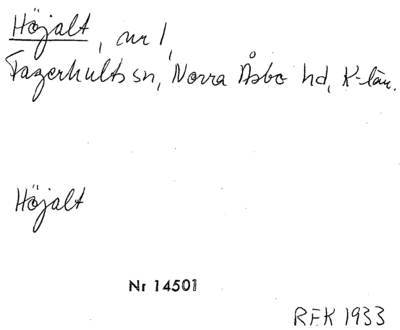 Höjalt, nr 1,
Fagerhults sn, Norra Åsbo hd, K-län.
Höjalt
Nr 14501
REK 1933